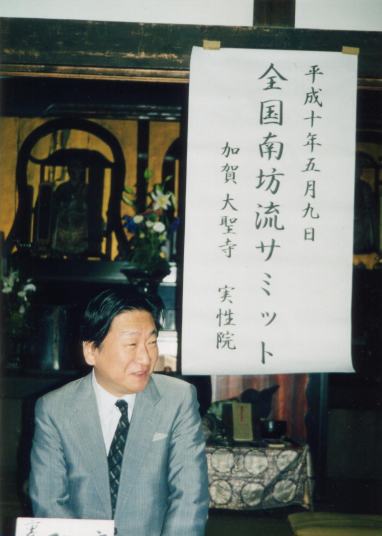 平成十年五月九日
全国南坊流サミット
加賀大聖寺 実性院